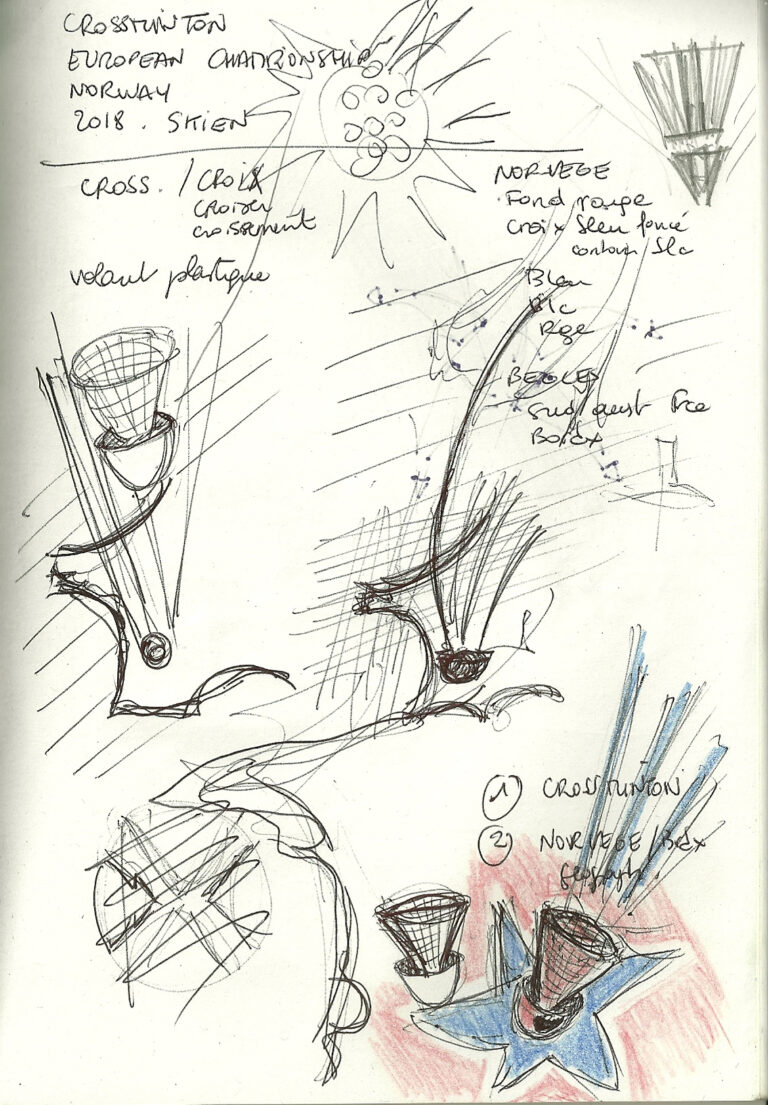 CROSSMINTON
EUROPEAN CHAMPIONSHIP
NORWAY
2018. SKIEN
CROSS. / CROIX
croiser
croissement
volant plastique
NORVEGE
Fond rouge
croix bleu foncé
contour blc
Bleu
Blc
Rge
BEGLES
Sud ouest Fce
Bordx
1 CROSSMINTON
2 NORVEGE / Bdx